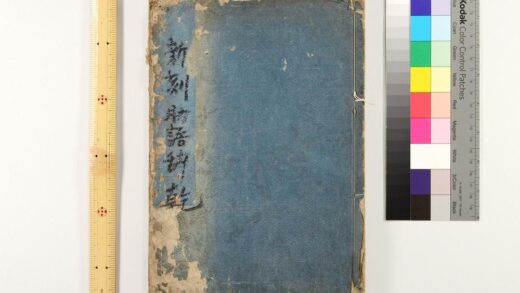 新刻助語辞 乾
Kodak Color Control Patches
Blue
Cyan
Green
Yellow
Red
Magenta
White
3/Color
Black